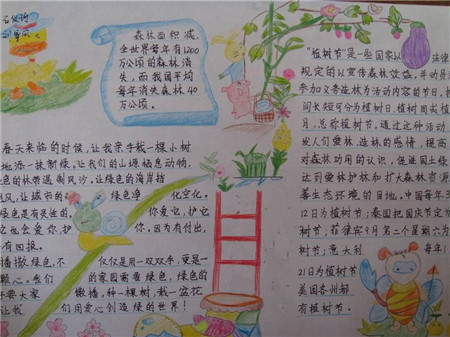 森林面积减,
全世界每年有1200
万公顷的森林消
失,而我国平均
每年消失森林40
万公顷。
"植树节"是一些国家以法律
规定的以宣传森林效益,并动员
参加义务造林为活动内容的节日,按
间长短可分为植树日、植树周或植
月,总称植树节,通过这种活动
发人们爱林、造林的感情,提高
对森林功用的认识,促进国土绿
达到爱林护林和扩大森林资源
善生态环境的目地。中国每年3
12日为植树节;泰国把国庆节定为
树节,菲律宾9月第二个星期六为
树节;意大利 每年1
21日为植树节
美国各州都
有植树节。
春天来临的时候,让我亲手栽一棵小树
地添一抹新绿,让我们的山源栖息动物,
色的林带遏制风沙,让绿色的海岸挡
风,让城市的 绿色净化空气。
绿色是有灵性的, 你爱它,护它
它也会爱你护 你,因为有付出,
有回报。
播撒绿色,不仅仅是用一双双手,更是一
颗心。我们的家园需要绿色,绿色的
要大家撒播,种一棵树,栽一盆花
让我们用爱心创造绿的世界!